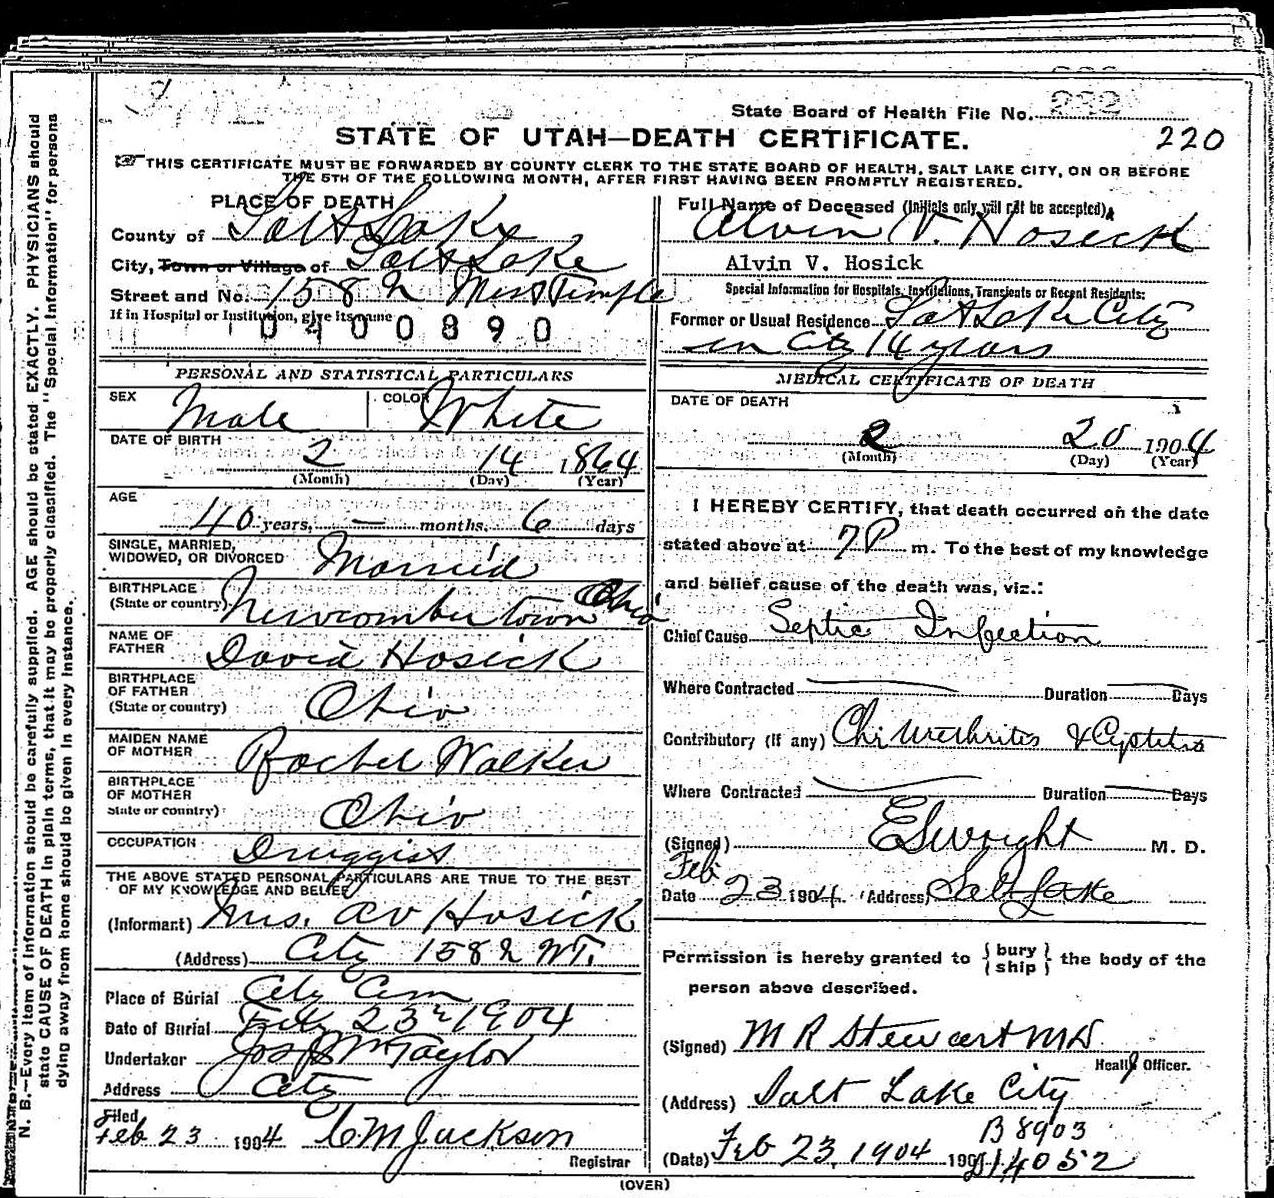 N. B.—Every item of information should be carefully supplied. AGE should be stated EXACTLY. PHYSICIANS should
state CAUSE OF DEATH in plain terms, that it may be properly classified. The "Special Information" for persons
dying away from home should be given in every instance.
State Board of Health File No. 232
220
STATE OF UTAH—DEATH CERTIFICATE.
THIS CERTIFICATE MUST BE FORWARDED BY COUNTY CLERK TO THE STATE BOARD OF HEALTH, SALT LAKE CITY, ON OR BEFORE
THE 5TH OF THE FOLLOWING MONTH, AFTER FIRST HAVING BEEN PROMPTLY REGISTERED.
PLACE OF DEATH
County of Salt Lake
City, Town or Village of Salt Lake
Street and No. 158 N West Temple
If in Hospital or Institution, give its name
0400890
PERSONAL AND STATISTICAL PARTICULARS
SEX Male COLOR White
DATE OF BIRTH
2 14 1864
(Month) (Day) (Year)
AGE
40 years, — months, 6 days
SINGLE, MARRIED,
WIDOWED, OR DIVORCED Married
BIRTHPLACE
(State or country) Newcomberstown Ohio
NAME OF
FATHER David Hosick
BIRTHPLACE
OF FATHER
(State or country) Ohio
MAIDEN NAME
OF MOTHER Rachel Walker
BIRTHPLACE
OF MOTHER
State or country) Ohio
OCCUPATION Druggist
THE ABOVE STATED PERSONAL PARTICULARS ARE TRUE TO THE BEST
OF MY KNOWLEDGE AND BELIEF
(Informant) Mrs. A V Hosick
(Address) City 158 N W T.
Place of Burial City Cem
Date of Burial Feb 23 1904
Undertaker Jos Wm Taylor
Address City
Filed
Feb 23 1904 C M Jackson
Registrar
Full Name of Deceased (Initials only will not be accepted)
Alvin V. Hosick
Alvin V. Hosick
Special Information for Hospitals, Institutions, Transients or Recent Residents:
Former or Usual Residence Salt Lake City
in City 14 years
MEDICAL CERTIFICATE OF DEATH
DATE OF DEATH
2 20 1904
(Month) (Day) (Year)
I HEREBY CERTIFY, that death occurred on the date
stated above at 7 P m. To the best of my knowledge
and belief cause of the death was, viz.:
Chief Cause Septic Infection
Where Contracted Duration Days
Contributory (If any) Chr Urethritis & Cystitis
Where Contracted Duration Days
(Signed) E S Wright M. D.
Date Feb 23 1904. (Address) Salt Lake
Permission is hereby granted to { bury / ship } the body of the
person above described.
(Signed) M R Stewart MD.
Health Officer.
(Address) Salt Lake City
B 8903
(Date) Feb 23, 1904 190 D14052
(OVER)